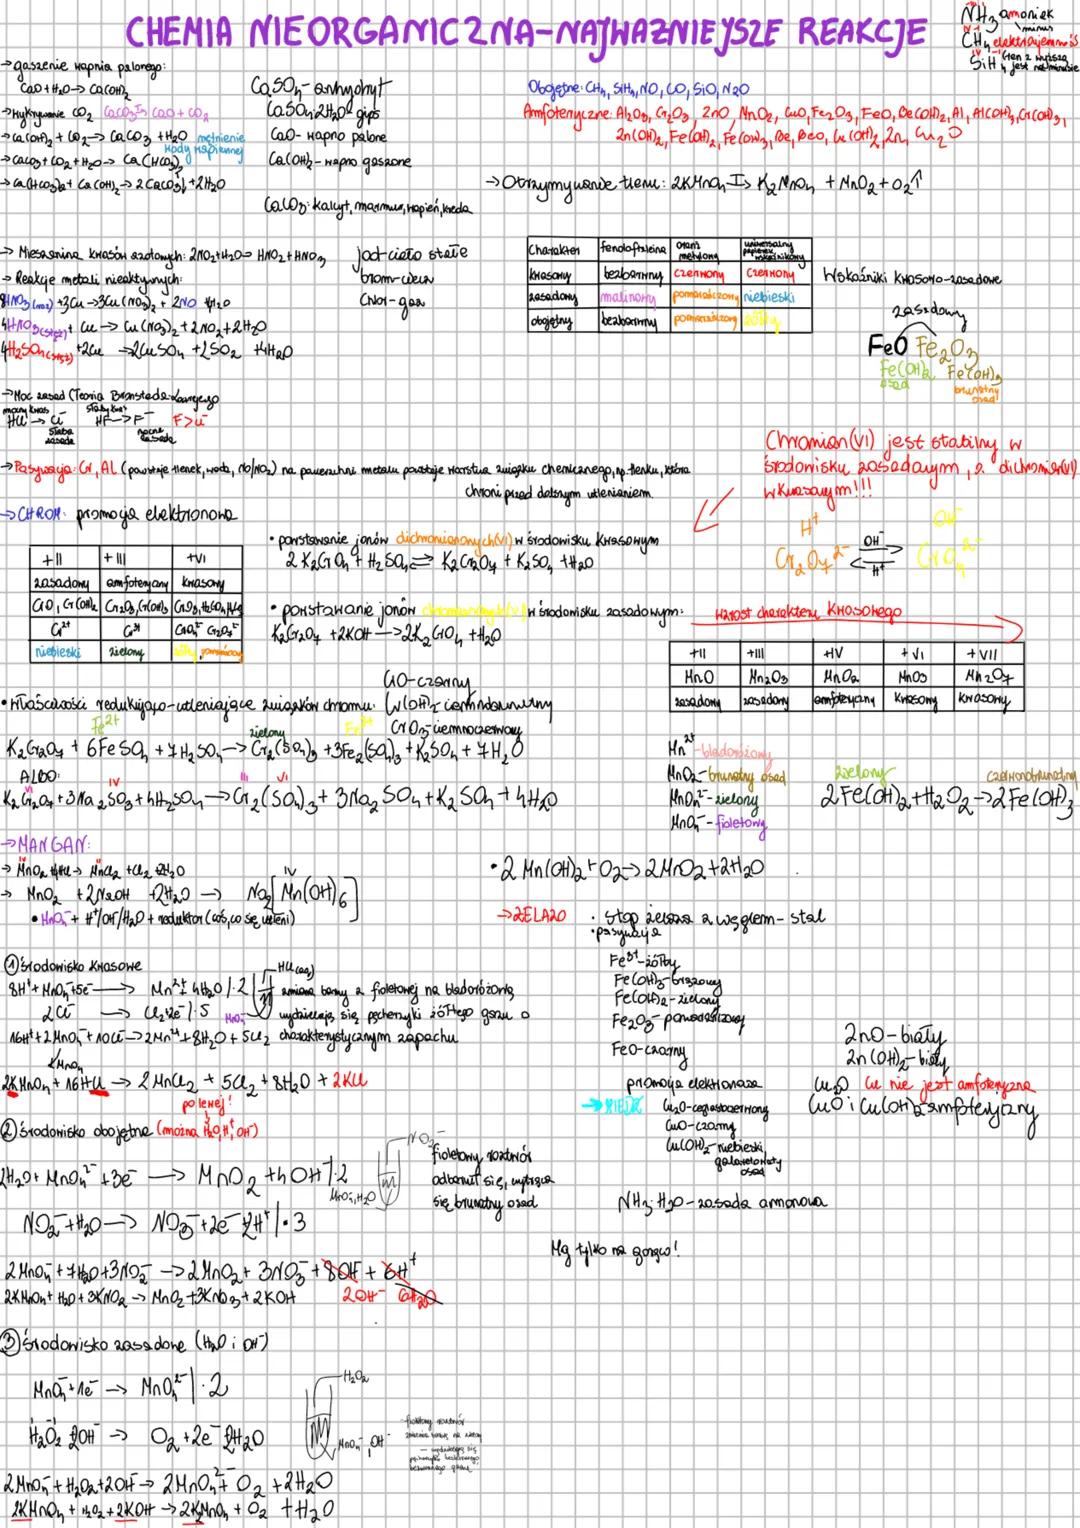 CHEMIA NIEORGANICZNA-NAJWAŻNIEJSZE REAKCJE
NH₃ amoniak
minus
CH₄ elektroujemność
SiH₄
→ gaszenie wapnia palonego:
CaO + H₂O → Ca(OH)₂
→ Wykrywanie CO₂ CaCO₃ →T CaO + CO₂
→ Ca(OH)₂ + CO₂ → CaCO₃ + H₂O mętnienie wody wapiennej
→ CaCO₃ + CO₂ + H₂O → Ca(HCO₃)₂
→ Ca(HCO₃)₂ + Ca(OH)₂ → 2CaCO₃↓ + 2H₂O
CaSO₄ - anhydryt
CaSO₄·2H₂O - gips
CaO - wapno palone
Ca(OH)₂ - wapno gaszone
CaCO₃: kalcyt, marmur, wapień, kreda
Obojętne: CH₄, SiH₄, NO, CO, SiO, N₂O
Amfoteryczne: Al₂O₃, Cr₂O₃, ZnO, MnO₂, CuO, Fe₂O₃, FeO, Be(OH)₂, Al, Al(OH)₃, Cr(OH)₃,
Zn(OH)₂, Fe(OH)₂, Fe(OH)₃, Be, BeO, Cu(OH)₂, Zn, Cu₂O
→ Otrzymywanie tlenu: 2KMnO₄ →T K₂MnO₄ + MnO₂ + O₂↑
→ Mieszanina kwasów azotowych: 2NO₂ + H₂O → HNO₂ + HNO₃
→ Reakcje metali nieaktywnych:
8HNO₃(roz) + 3Cu → 3Cu(NO₃)₂ + 2NO + 4H₂O
4HNO₃(stęż) + Cu → Cu(NO₃)₂ + 2NO₂ + 2H₂O
4H₂SO₄(stęż) + 2Cu → 2CuSO₄ + 2SO₂ + 4H₂O
jod - ciało stałe
brom - ciecz
chlor - gaz
Charakter | fenoloftaleina | oranż metylowy | uniwersalny papierek wskaźnikowy
kwasowy | bezbarwny | czerwony | czerwony
zasadowy | malinowy | pomarańczowy | niebieski
obojętny | bezbarwny | pomarańczowy | żółty
Wskaźniki kwasowo-zasadowe
zasadowy
FeO Fe₂O₃
Fe(OH)₂ Fe(OH)₃
osad brunatny osad
→ Moc zasad (Teoria Brønsteda-Lowry'ego
mocny kwas słaby kwas
HCl → Cl⁻ HF → F⁻ F > Cl⁻
słaba zasada mocna zasada
→ Pasywacja: Cr, Al (powstaje tlenek, woda, NO/NO₂) na powierzchni metalu powstaje warstwa związku chemicznego, np. tlenku, która
chroni przed dalszym utlenianiem.
Chromian(VI) jest stabilny w
środowisku zasadowym, a dichromian(VI)
w kwasowym!!!
→ CHROM: promocja elektronowa
+II | +III | +VI
zasadowy | amfoteryczny | kwasowy
CrO, Cr(OH)₂ | Cr₂O₃, Cr(OH)₃ | CrO₃, H₂CrO₄
Cr²⁺ | Cr³⁺ | CrO₄²⁻ Cr₂O₇²⁻
niebieski | zielony | żółty, pomarańczowy
• powstawanie jonów dichromianowych(VI) w środowisku kwasowym
2K₂CrO₄ + H₂SO₄ ⇌ K₂Cr₂O₇ + K₂SO₄ + H₂O
• powstawanie jonów chromianowych(VI) w środowisku zasadowym:
K₂Cr₂O₇ + 2KOH → 2K₂CrO₄ + H₂O
H⁺ OH⁻
Cr₂O₇²⁻ OH⁻ ⇌ H⁺ CrO₄²⁻
wzrost charakteru kwasowego
+II | +III | +IV | +VI | +VII
MnO | Mn₂O₃ | MnO₂ | MnO₃ | Mn₂O₇
zasadowy | zasadowy | amfoteryczny | kwasowy | kwasowy
CrO - czarny
CrO₃ - ciemnoczerwony
• Właściwości redukująco-utleniające związków chromu.
Fe²⁺ zielony Fe³⁺
K₂Cr₂O₇ + 6FeSO₄ + 7H₂SO₄ → Cr₂(SO₄)₃ + 3Fe₂(SO₄)₃ + K₂SO₄ + 7H₂O
ALBO:
VI IV III VI
K₂Cr₂O₇ + 3Na₂SO₃ + 4H₂SO₄ → Cr₂(SO₄)₃ + 3Na₂SO₄ + K₂SO₄ + 4H₂O
Mn²⁺ - bladoróżowy
MnO₂ - brunatny osad
MnO₄²⁻ - zielony
MnO₄⁻ - fioletowy
zielony czerwonobrunatny
2Fe(OH)₂ + H₂O₂ → 2Fe(OH)₃
→ MANGAN:
→ MnO₂ + 4HCl → MnCl₂ + Cl₂ + 2H₂O
→ MnO₂ + 2NaOH + 2H₂O → Na₂[Mn(OH)₆]
• MnO₄⁻ + H⁺/OH⁻/H₂O + reduktor (coś, co się utleni)
• 2Mn(OH)₂ + O₂ → 2MnO₂ + 2H₂O
→ ŻELAZO
• stop żelaza z węglem - stal
• pasywacja
Fe³⁺ - żółty
Fe(OH)₃ - brązowy
Fe(OH)₂ - zielony
FeO - czarny
① środowisko kwasowe
8H⁺ + MnO₄⁻ + 5e⁻ → Mn²⁺ + 4H₂O /·2
2Cl⁻ → Cl₂ + 2e⁻ /·5
16H⁺ + 2MnO₄⁻ + 10Cl⁻ → 2Mn²⁺ + 8H₂O + 5Cl₂
HCl(aq)
MnO₄⁻
zmiana barwy z fioletowej na bladoróżową
wydzielają się pęcherzyki żółtego gazu o
charakterystycznym zapachu
KMnO₄
2KMnO₄ + 16HCl → 2MnCl₂ + 5Cl₂ + 8H₂O + 2KCl
ZnO - biały
Zn(OH)₂ - biały
Cu₂O Cu nie jest amfoteryczne
CuO i Cu(OH)₂ - amfoteryczny
promocja elektronowa
→ MIEDŹ
Cu₂O - ceglastoczerwony
CuO - czarny
Cu(OH)₂ - niebieski, galaretowaty osad
② środowisko obojętne (można H₂O, H⁺, OH⁻)
2H₂O + MnO₄²⁻ + 3e⁻ → MnO₂ + 4OH⁻ /·2
NO₂⁻ + H₂O → NO₃⁻ + 2e⁻ + 2H⁺ /·3
NO₂⁻
MnO₄⁻, H₂O
fioletowy roztwór
odbarwił się, wytrąca
się brunatny osad
2MnO₄⁻ + 7H₂O + 3NO₂⁻ → 2MnO₂ + 3NO₃⁻ + 8OH⁻ + 6H⁺
2OH⁻ 6H₂O
2KMnO₄ + H₂O + 3KNO₂ → MnO₂ + 3KNO₃ + 2KOH
NH₃·H₂O - zasada amonowa
Mg tylko na gorąco!
③ środowisko zasadowe (H₂O i OH⁻)
MnO₄⁻ + 1e⁻ → MnO₄²⁻ /·2
H₂O₂ + 2OH⁻ → O₂ + 2e⁻ + 2H₂O
H₂O₂
MnO₄⁻, OH⁻
fioletowy roztwór
2MnO₄⁻ + H₂O₂ + 2OH⁻ → 2MnO₄²⁻ + O₂ + 2H₂O
2KMnO₄ + H₂O₂ + 2KOH → 2K₂MnO₄ + O₂ + H₂O